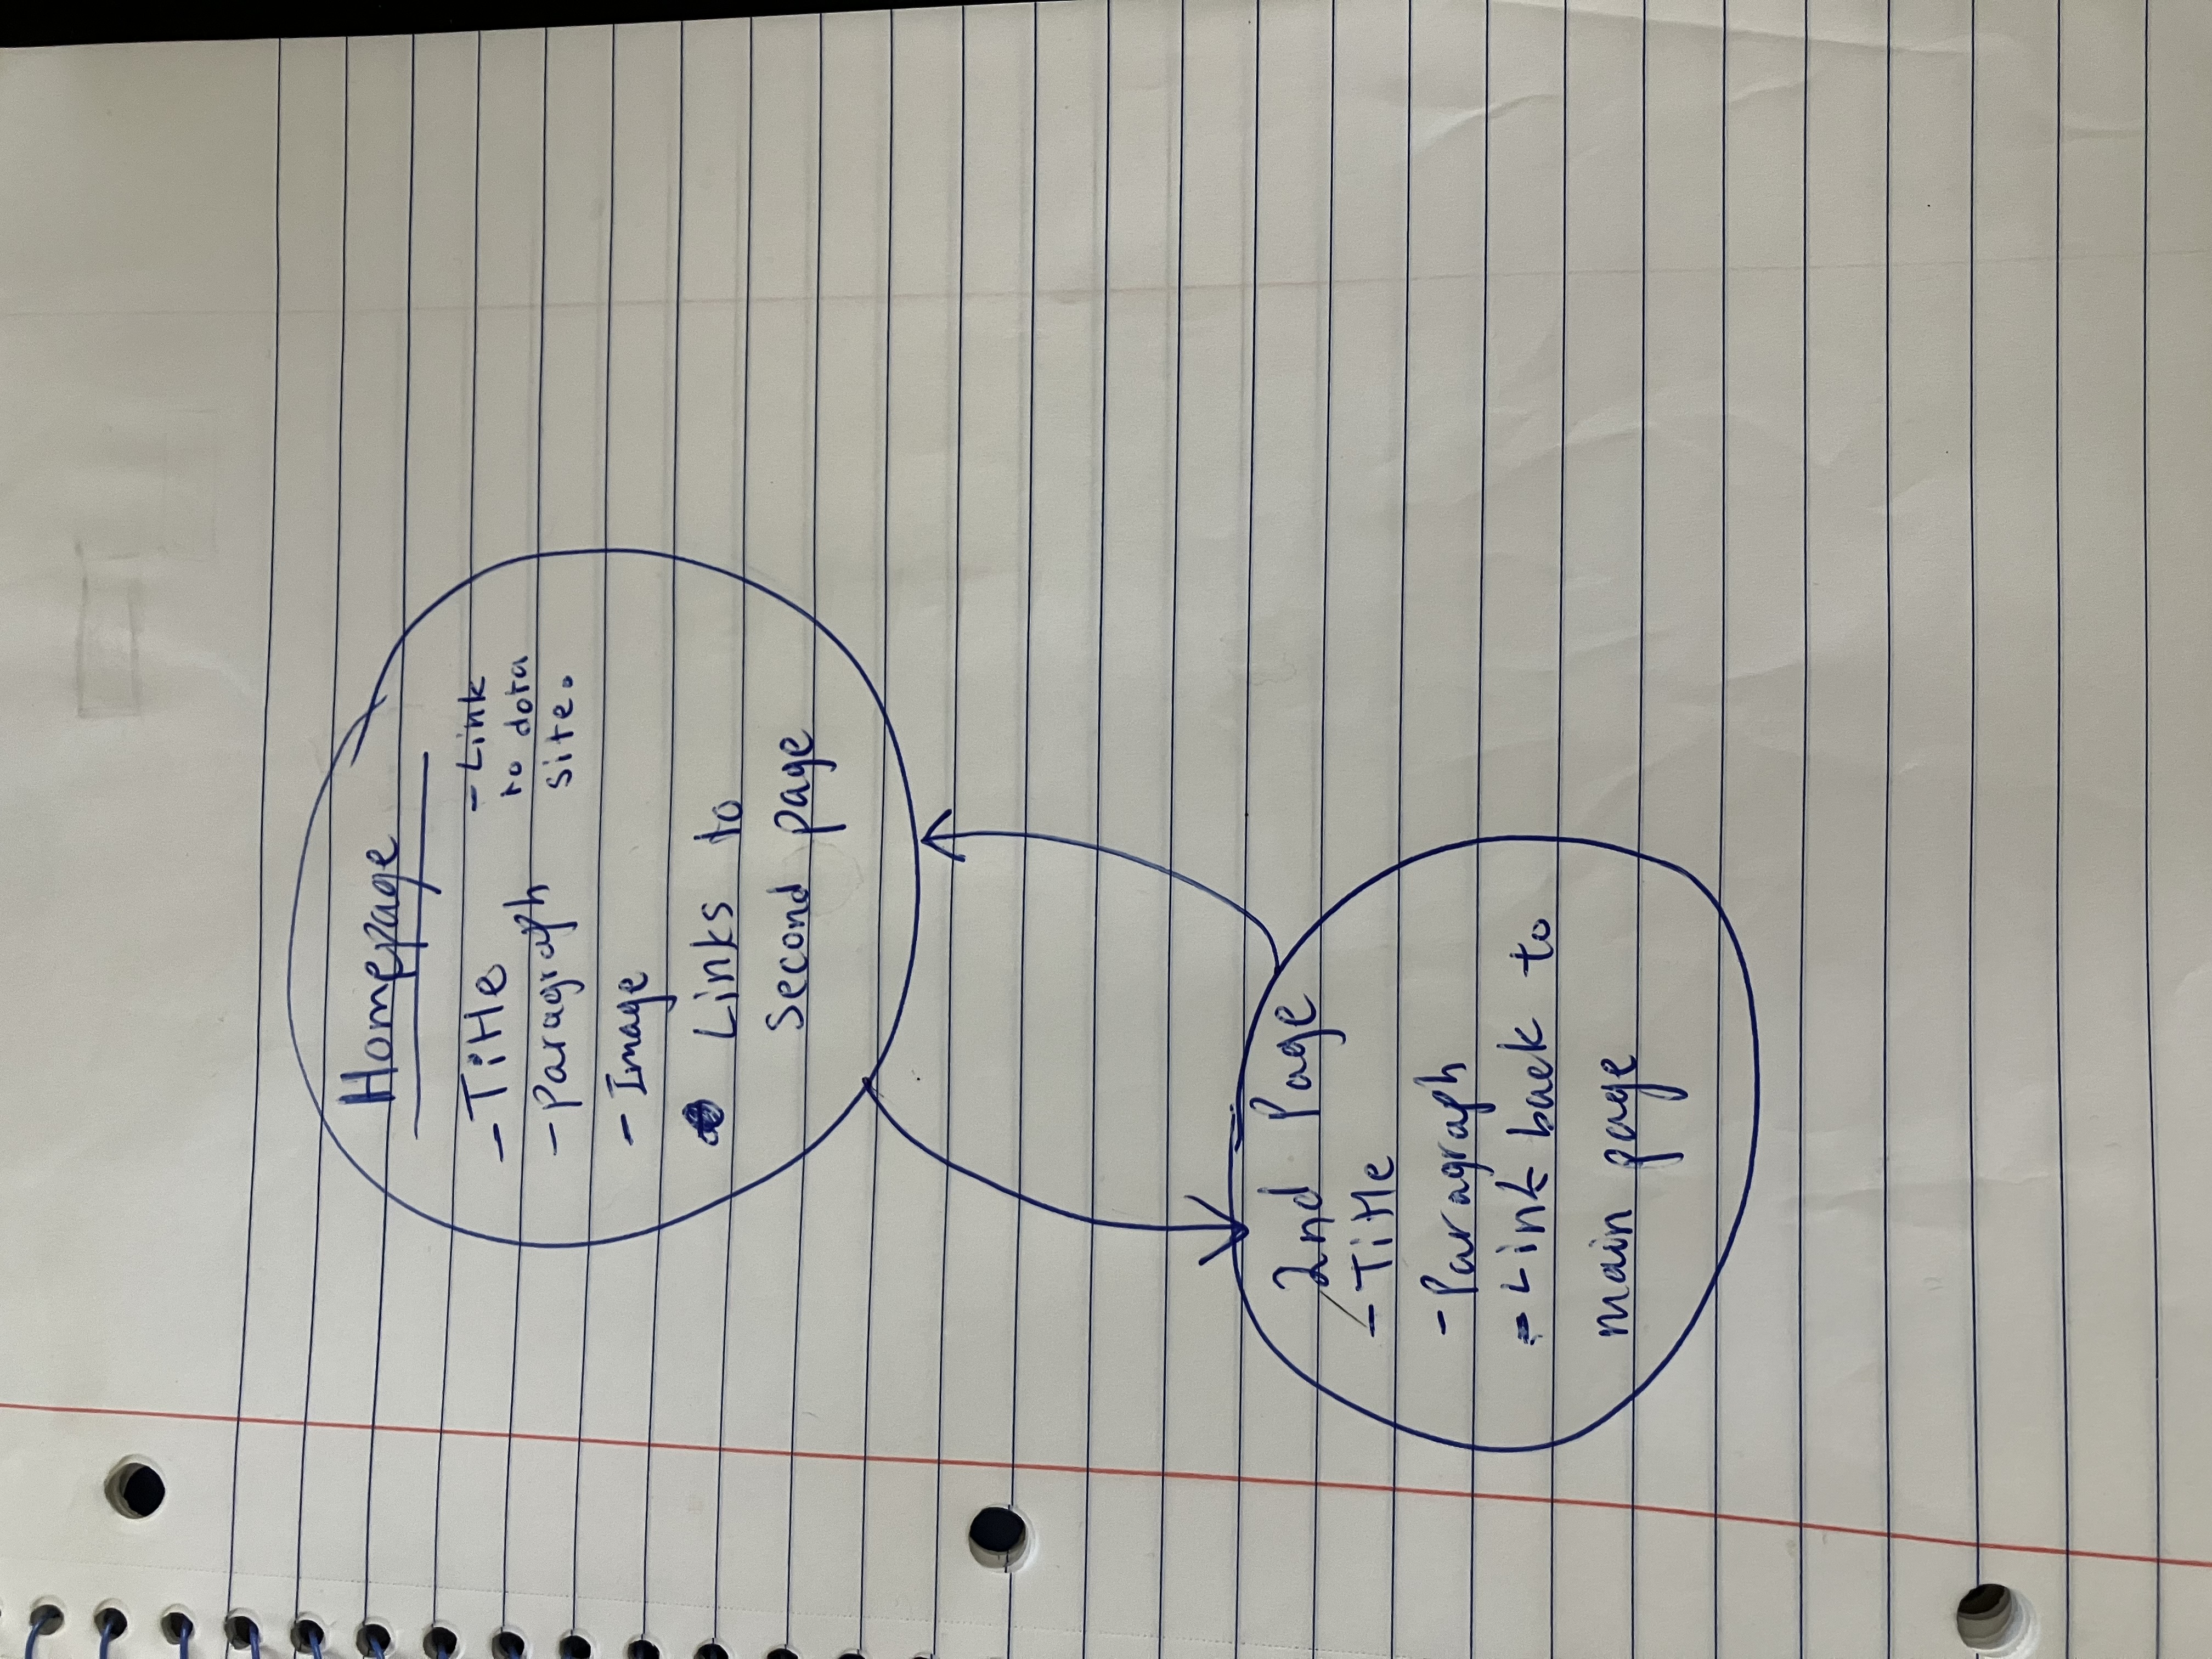 Homepage
- Title
- Paragraph
- Image
Links to
second page
- Link
to dota
site.
2nd Page
- Title
- Paragraph
- Link back to
main page